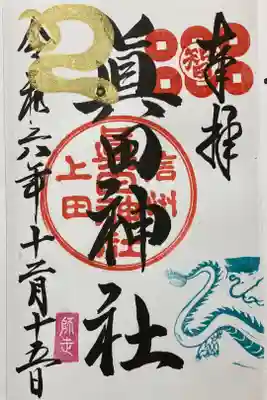 奉拝
智
眞田神社
信州
上田
眞田神社
令和六年十二月十五日
師走